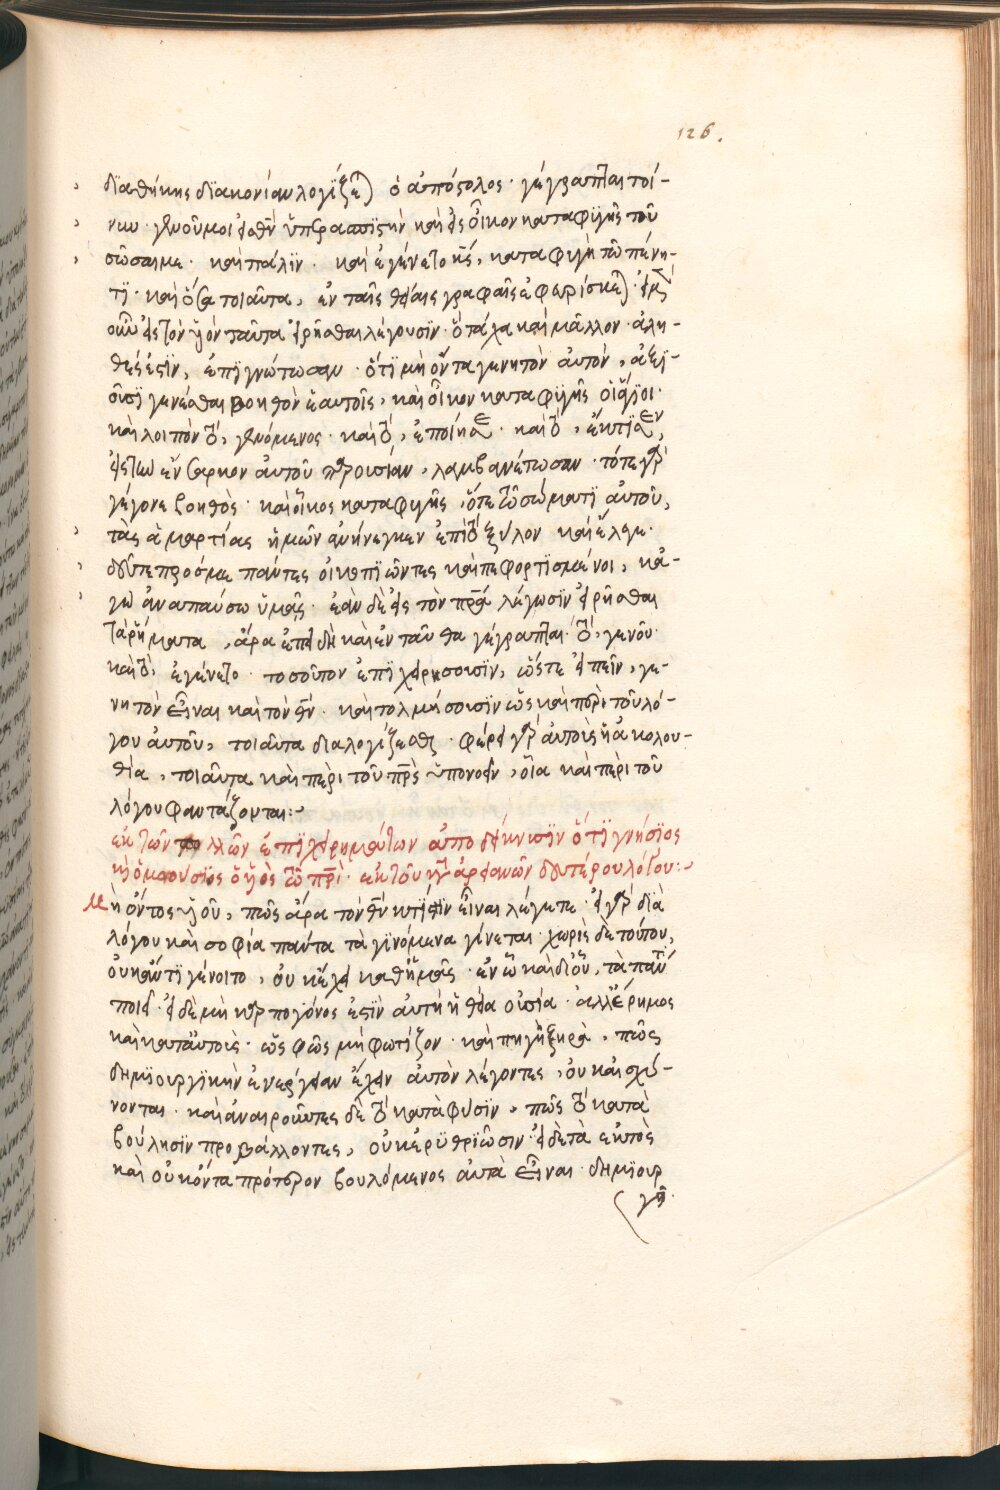 126.
διαθήκης διακονίαν λογίζε) ὁ ἀπόστολος· γέγραπται τοί-
νυν· γενοῦ μοι εἰς θν̄ ὑπερασπιστὴν καὶ εἰς οἶκον καταφυγῆς τοῦ
σῶσαι με· καὶ πάλιν· καὶ ἐγένετο κς̄, καταφυγὴ τῶ πένη-
τι· καὶ ὅσα τοιαῦτα, ἐν ταῖς θείαις γραφαῖς ἐφευρίσκε)· εἰ μὲν
οὖν εἰς τὸν ὑὸν ταῦτα εἰρῆσθαι λέγουσιν· ὃ τάχα καὶ μᾶλλον ἀλη-
θές ἐστιν, ἐπιγνώτωσαν· ὅτι μὴ ὄντα γενητὸν αὐτὸν, ἀξι-
οῦσι γενέσθαι βοηθὸν ἑαυτοῖς, καὶ οἶκον καταφυγῆς οἱ ἅγιοι·
καὶ λοιπὸν τὸ, γενόμενος· καὶ τὸ, ἐποίησε· καὶ τὸ, ἔκτισεν,
εἰς τὴν ἔνσαρκον αὐτοῦ παρουσίαν, λαμβανέτωσαν· τότε γὰρ
γέγονε βοηθὸς· καὶ οἶκος καταφυγῆς, ὅτε τῶ σώματι αὐτοῦ,
τὰς ἁμαρτίας ἡμῶν ἀνήνεγκεν ἐπὶ τὸ ξύλον καὶ ἔλεγε·
δεῦτε πρός με πάντες οἱ κοπιῶντες καὶ πεφορτισμένοι, κἀ-
γὼ ἀναπαύσω ὑμᾶς· ἐὰν δὲ εἰς τὸν πρ̄α λέγωσιν εἰρῆσθαι
τὰ ῥήματα, ἆρα ἐπειδὴ καὶ ἐνταῦθα γέγραπται· τὸ, γενοῦ·
καὶ τὸ, ἐγένετο· τοσοῦτον ἐπιχειρήσουσιν, ὥστε εἰπεῖν, γε-
νητὸν εἶναι καὶ τὸν θν̄· καὶ τολμήσουσιν ὡς καὶ περὶ τοῦ λό-
γου αὐτοῦ, τοιαῦτα διαλογίζεσθαι· φέρει γὰρ αὐτοὺς ἡ ἀκολου-
θία, τοιαῦτα καὶ περὶ τοῦ πρ̄ς ὑπονοεῖν, οἷα καὶ περὶ τοῦ
λόγου φαντάζονται:-
ἐκ τῶν πολλῶν ἐπιχειρημάτων ἀποδείκνυσιν ὅτι γνήσιος
κὴ ὁμοούσιος ὁ ὑὸς τῶ πρ̄ι· ἐκ τοῦ κατ' ἀρειανῶν δευτέρου λόγου:-
Μὴ ὄντος ὑοῦ, πῶς ἆρα τὸν θν̄ κτίστην εἶναι λέγετε· εἰ γὰρ διὰ
λόγου καὶ σοφία πάντα τὰ γινόμενα γίνεται· χωρὶς δὲ τούτου,
οὐκ ἄν τι γένοιτο, οὐκ ἔχει καθ' ἡμᾶς· ἐν ὧ καὶ δι' οὗ, τὰ πάντα
ποιεῖ· εἰ δὲ μὴ καρπογόνος ἐστὶν αὐτὴ ἡ θεία οὐσία· ἀλλ' ἔρημος
καὶ κατ' αὐτοὺς· ὡς φῶς μὴ φωτίζον· καὶ πηγὴ ξηρὰ, πῶς
δημιουργικὴν ἐνέργειαν ἔχειν αὐτὸν λέγοντες, οὐκ αἰσχύ-
νονται· καὶ ἀναιροῦντες δὲ τὸ κατὰ φύσιν, πῶς τὸ κατὰ
βούλησιν προβάλλοντες, οὐκ ἐρυθριῶσιν· εἰ δὲ τὰ ἐκτὸς
καὶ οὐκ ὄντα πρότερον βουλόμενος αὐτὰ εἶναι· δημιουρ
γεῖ·